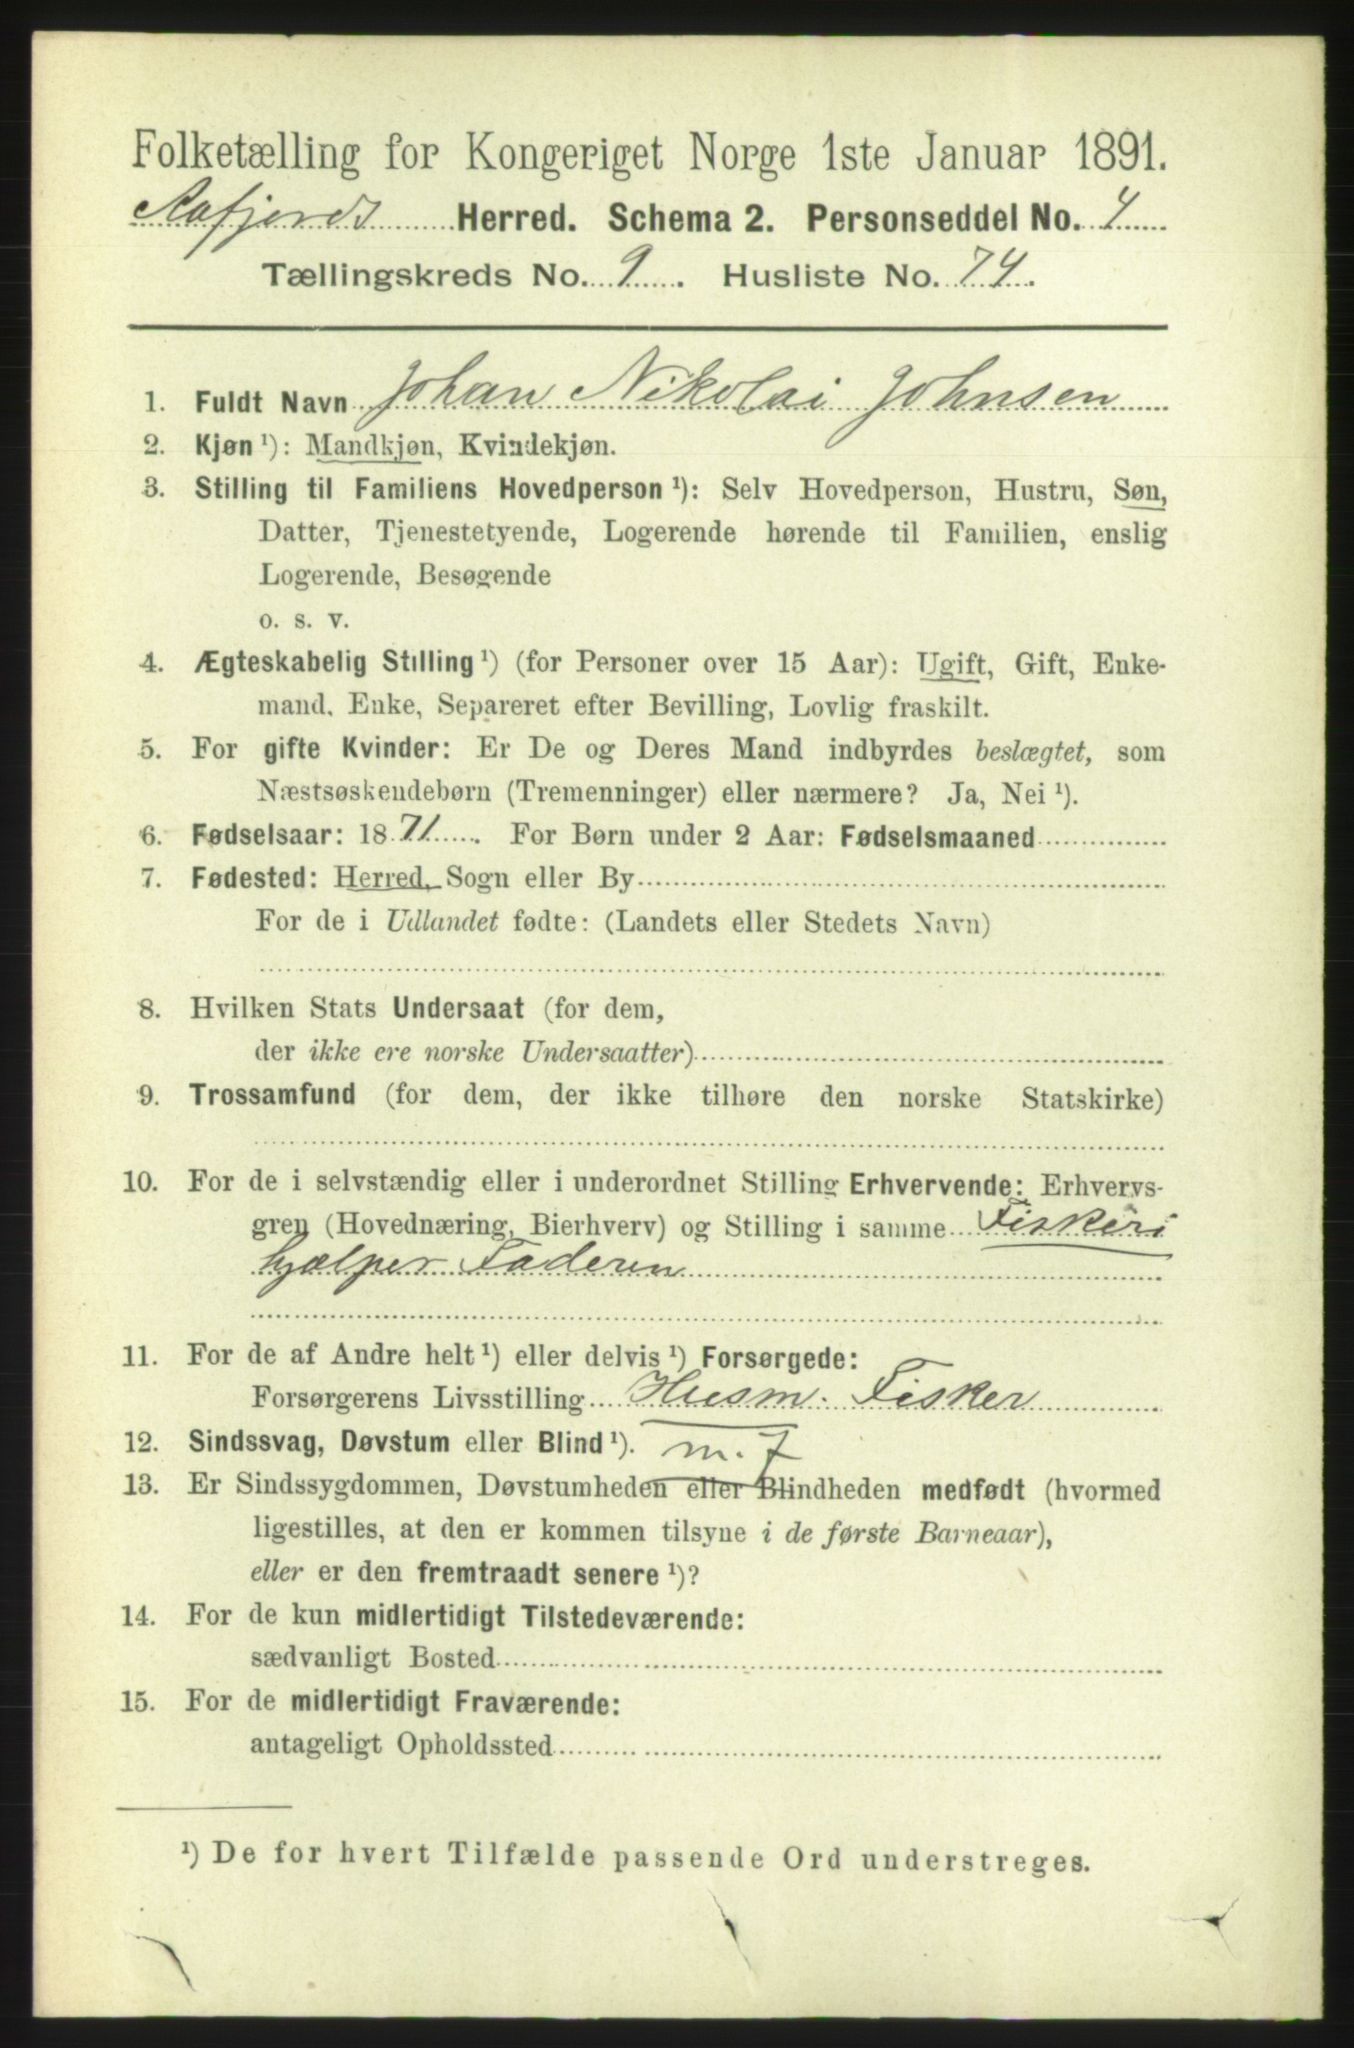 Folketælling for Kongeriget Norge 1ste Januar 1891.
Aafjords Herred. Schema 2. Personseddel No. 4
Tællingskreds No. 9. Husliste No. 74.
1. Fuldt Navn Johan Nikolai Johnsen
2. Kjøn ¹): Mandkjøn, Kvindekjøn.
3. Stilling til Familiens Hovedperson ¹): Selv Hovedperson, Hustru, Søn,
Datter, Tjenestetyende, Logerende hørende til Familien, enslig
Logerende, Besøgende
o. s. v.
4. Ægteskabelig Stilling ¹) (for Personer over 15 Aar): Ugift, Gift, Enke-
mand, Enke, Separeret efter Bevilling, Lovlig fraskilt.
5. For gifte Kvinder: Er De og Deres Mand indbyrdes beslægtet, som
Næstsøskendebørn (Tremenninger) eller nærmere? Ja, Nei ¹).
6. Fødselsaar: 1871. For Børn under 2 Aar: Fødselsmaaned
7. Fødested: Herred, Sogn eller By
For de i Udlandet fødte: (Landets eller Stedets Navn)
8. Hvilken Stats Undersaat (for dem,
der ikke ere norske Undersaatter)
9. Trossamfund (for dem, der ikke tilhøre den norske Statskirke)
10. For de i selvstændig eller i underordnet Stilling Erhvervende: Erhvervs-
gren (Hovednæring, Bierhverv) og Stilling i samme Fiskeri
hjælper Faderen
11. For de af Andre helt ¹) eller delvis ¹) Forsørgede:
Forsørgerens Livsstilling Husm. Fisker
12. Sindssvag, Døvstum eller Blind ¹). m. J
13. Er Sindssygdommen, Døvstumheden eller Blindheden medfødt (hvormed
ligestilles, at den er kommen tilsyne i de første Barneaar),
eller er den fremtraadt senere ¹)?
14. For de kun midlertidigt Tilstedeværende:
sædvanligt Bosted
15. For de midlertidigt Fraværende:
antageligt Opholdssted
¹) De for hvert Tilfælde passende Ord understreges.